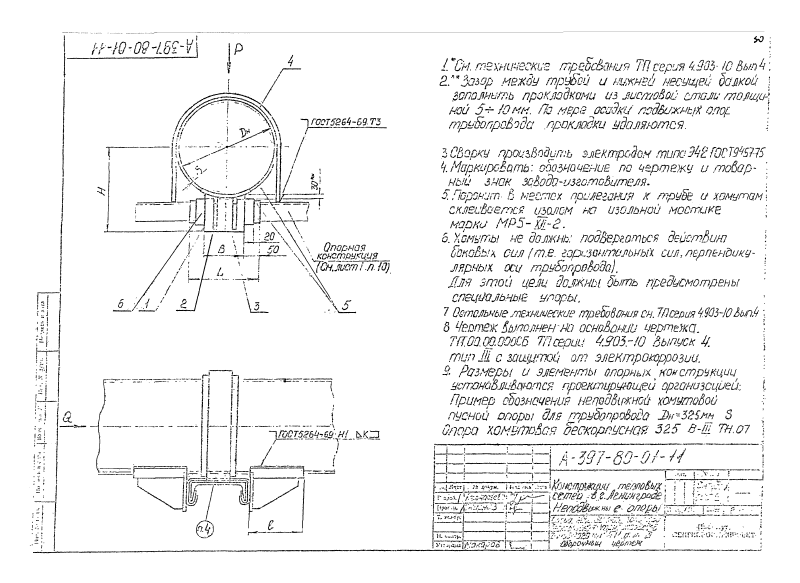 50
А-397-80-01-11
Р
4
1.*См. технические требования ТП серия 4.903-10 Вып 4
2.** Зазор между трубой и нижней несущей балкой
заполнить прокладками из листовой стали толщи-
ной 5÷10мм. По мере осадки подвижных опор
трубопровода прокладки удаляются.
3 Сварку производить электродом типа Э42 ГОСТ9467-75
4. Маркировать: обозначение по чертежу и товар-
ный знак завода-изготовителя.
5. Паронит в местах прилегания к трубе и хомутам
склеивается изолом на изольной мастике
марки МР5-XII-2.
6. Хомуты не должны подвергаться действию
боковых сил (т.е. горизонтальных сил, перпендику-
лярных оси трубопровода).
Для этой цели должны быть предусмотрены
специальные упоры.
7 Остальные технические требования см. ТП серия 4.903-10 Вып4
8 Чертеж выполнен на основании чертежа.
ТП.00.00.000СБ ТП серии 4.903-10 Выпуск 4.
тип III с защитой от электрокоррозии.
9. Размеры и элементы опорных конструкции
устанавливаются проектирующей организацией.
Пример обозначения неподвижной хомутовой
пусной опоры для трубопровода Dн=325мм S
Опора хомутовая бескорпусная 325 В-III ТН.07
ГОСТ5264-69.Т3
Dн
S
Н
30**
20
В
50
L
Опорная
конструкция
(См.лист 1. п.10)
6
1
2
3
5
Q
ГОСТ5264-69-Н1
п4
ℓ
А-397-80-01-11
Конструкции тепловых
сетей в г. Ленинграде
Неподвижные опоры
Сборочный чертеж